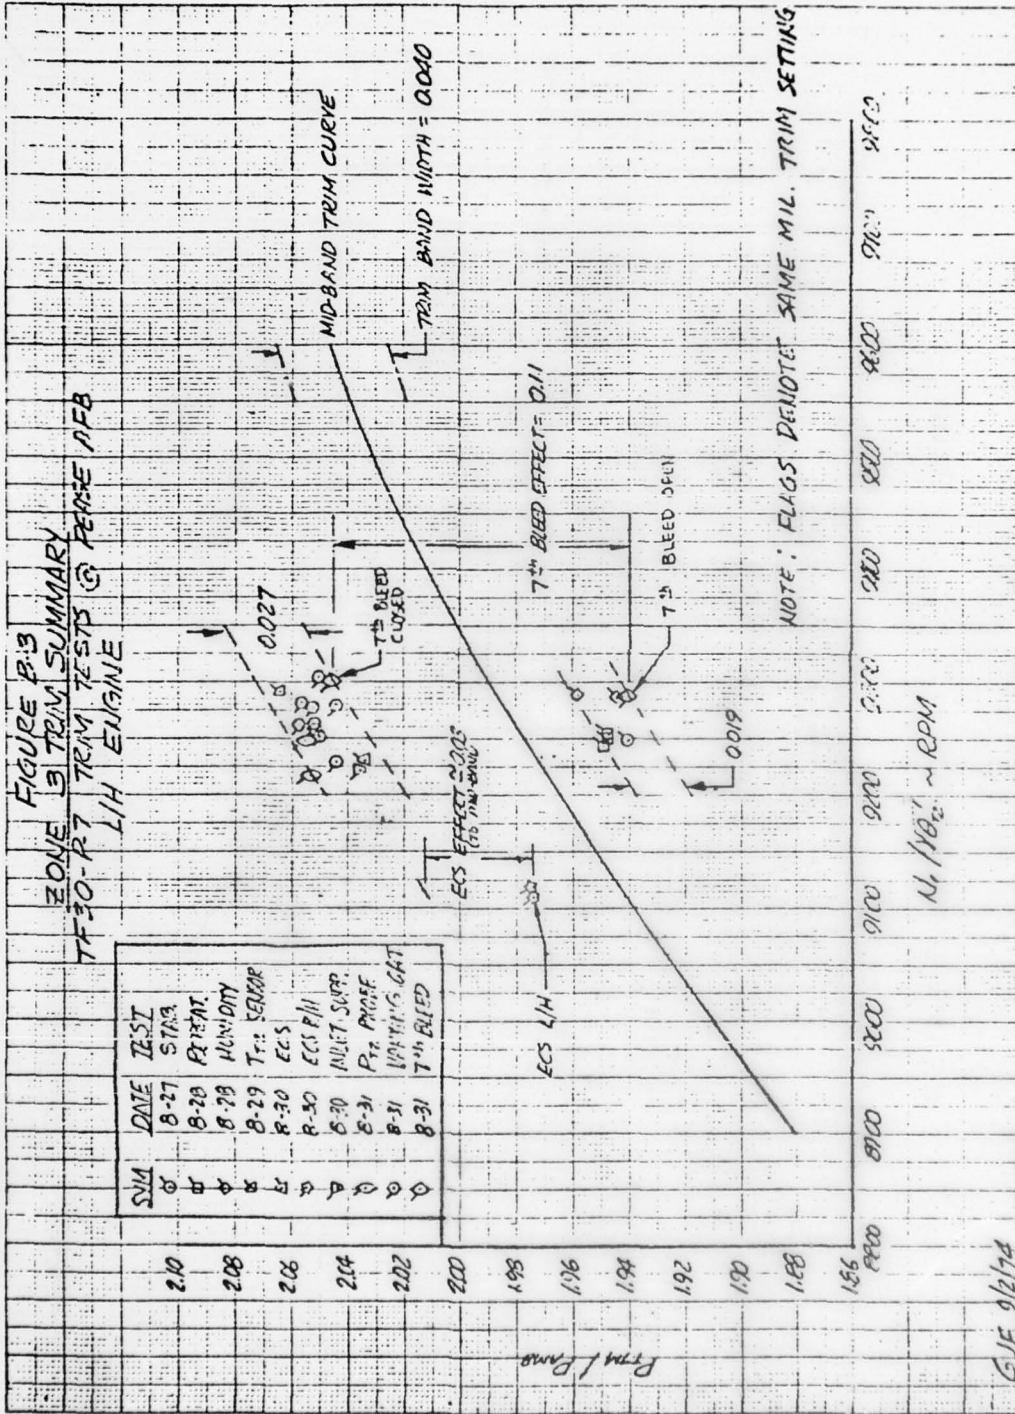 FIGURE B-3
ZONE 3 TRIM SUMMARY
TF30-P-7 TRIM TESTS @ PEASE AFB
L/H ENGINE
SYM DATE TEST
8-27 STAB.
8-28 REPEAT
8-28 HUMIDITY
8-29 SENSOR
8-30 ECS
8-30 ECS R/H
8-30 INLET SUPP.
8-31
8-31
8-31 7th BLEED
0.027
MID-BAND TRIM CURVE
TRIM BAND WIDTH = 0.040
7th BLEED
CLOSED
ECS EFFECT ≈ 0.05
(TO MID-BAND)
7th BLEED EFFECT = 0.11
ECS L/H
7th BLEED OPEN
0.019
NOTE: FLAGS DENOTE SAME MIL. TRIM SETTING
2.10
2.08
2.06
2.04
2.02
2.00
1.98
1.96
1.94
1.92
1.90
1.88
1.86
8800 8900 9000 9100 9200 9300 9400 9500 9600 9700 9800
~ RPM
GJF 9/2/74